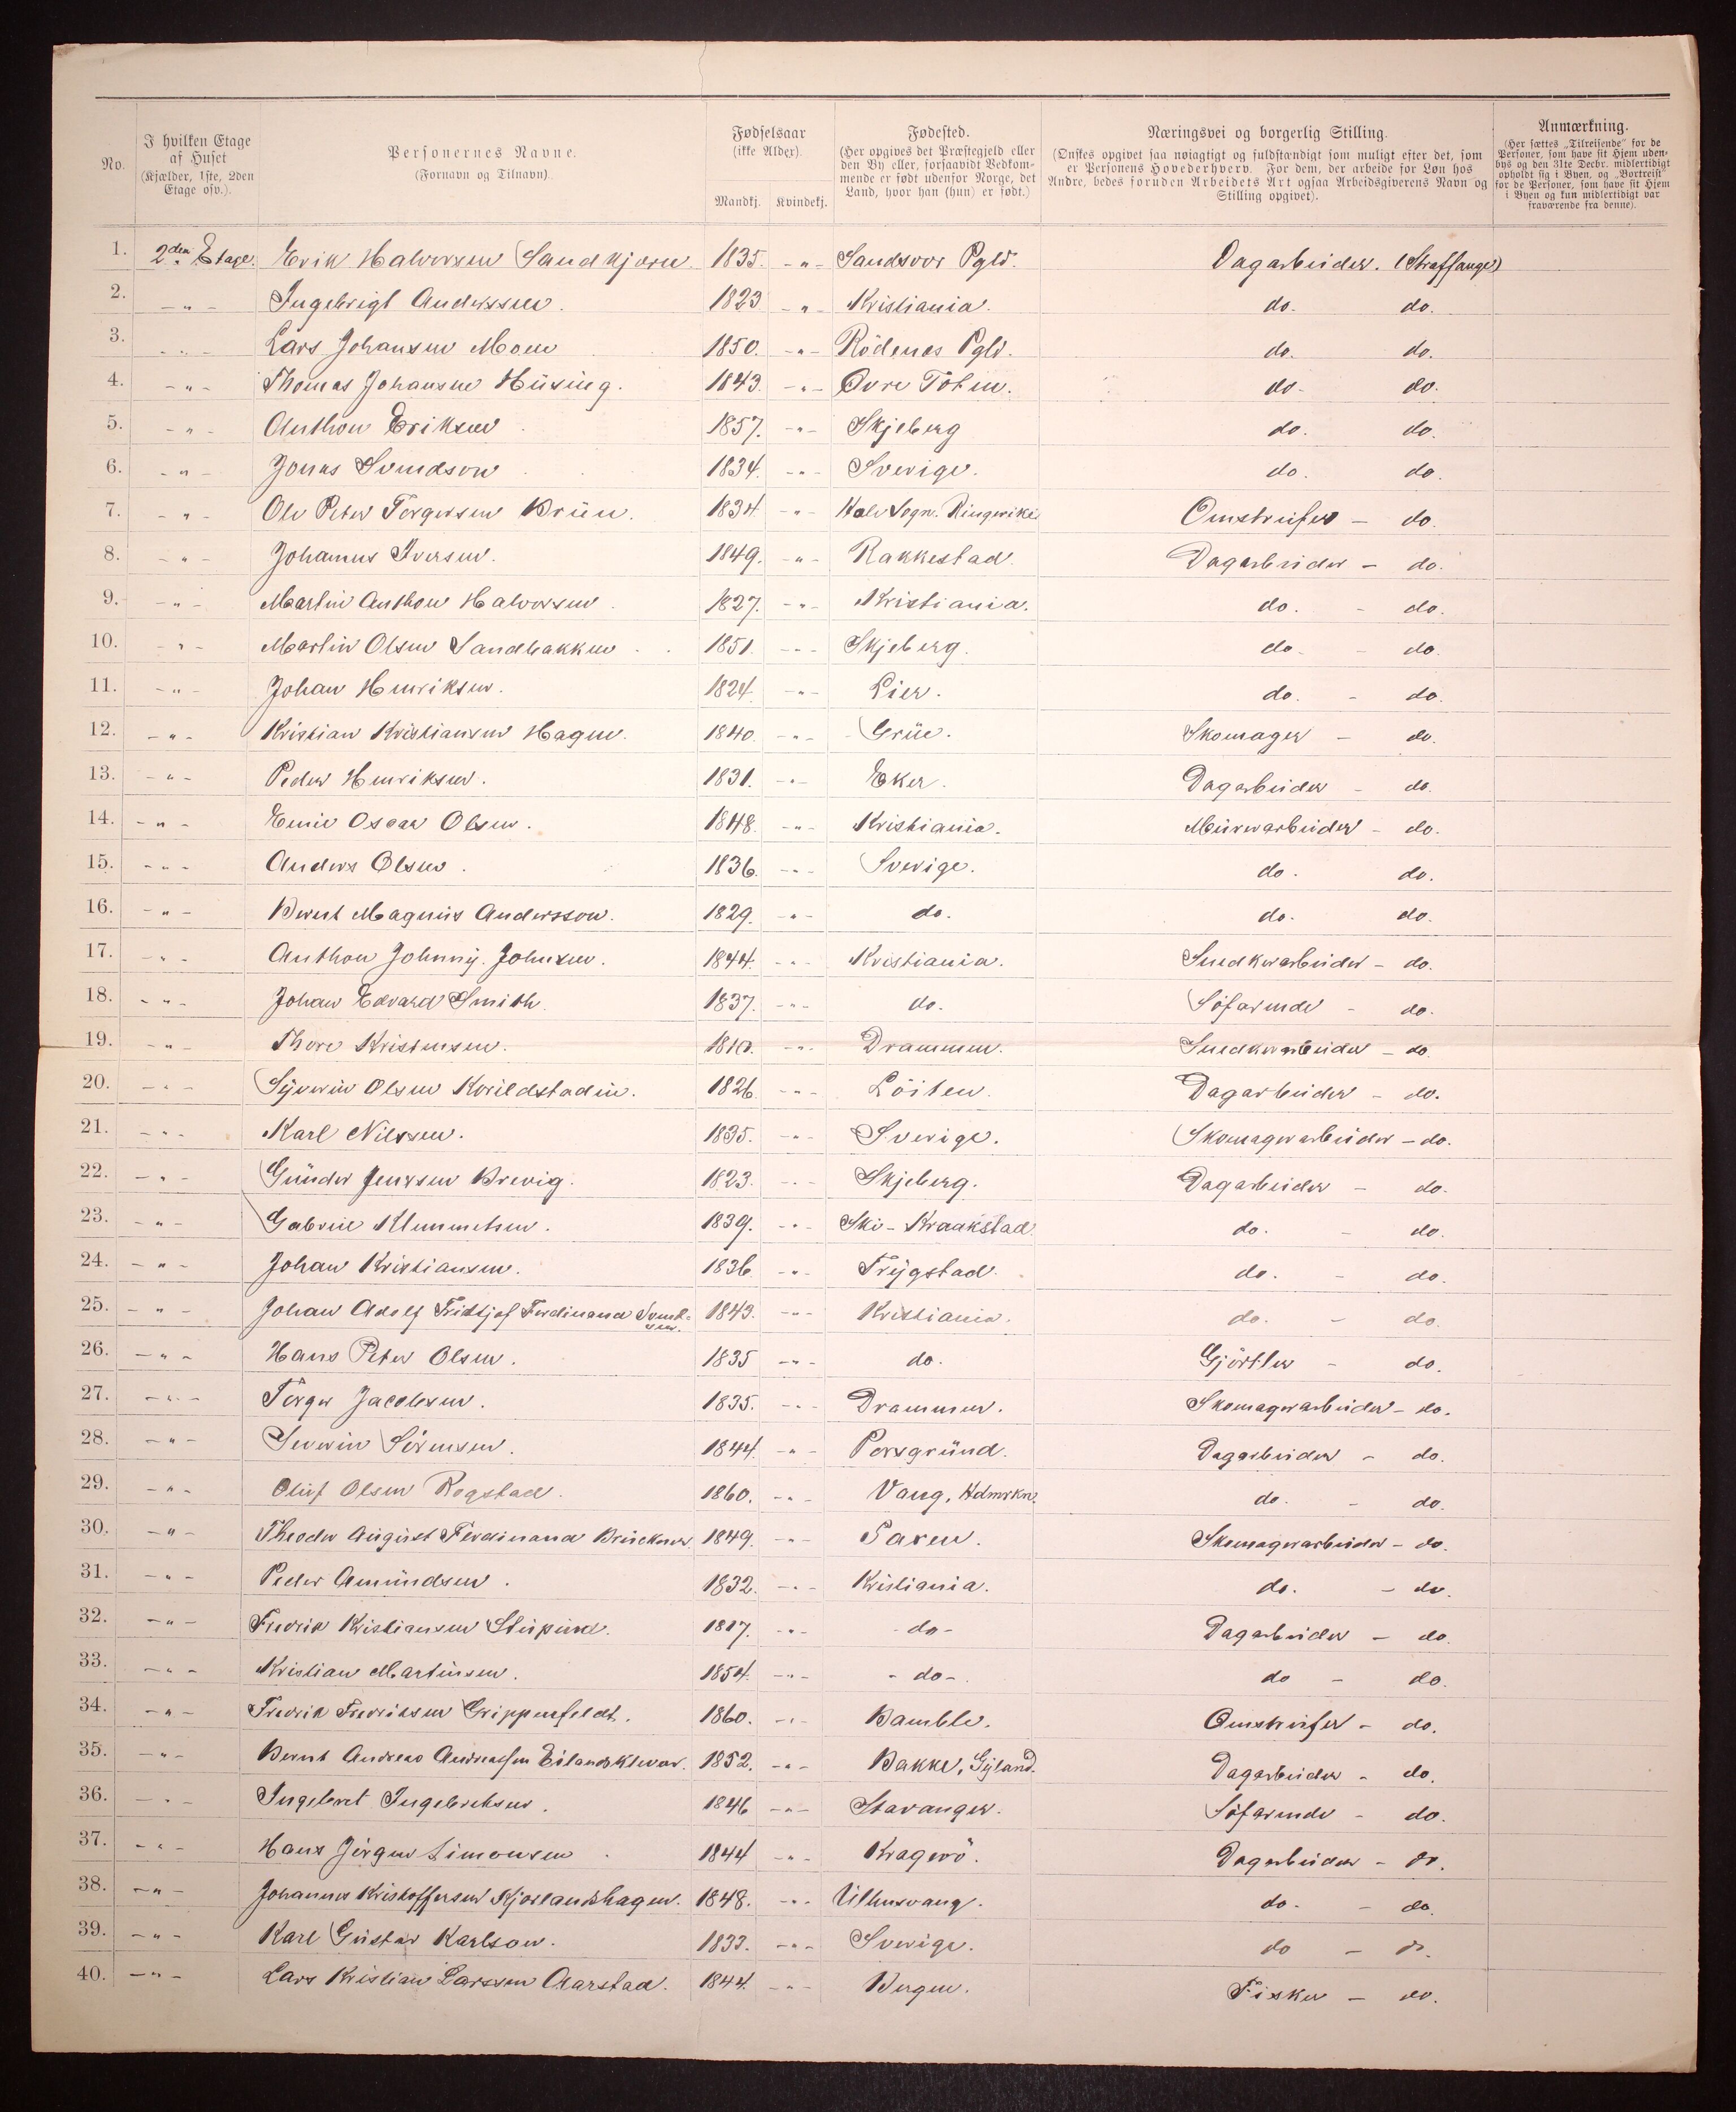 No.
I hvilken Etage af Huset (Kjælder, 1ste, 2den Etage osv.).
Personernes Navne. (Fornavn og Tilnavn).
Fødselsaar (ikke Alder). Mandkj. Kvindekj.
Fødested. (Her opgives det Præstegjeld eller den By eller, forsaavidt Vedkommende er født udenfor Norge, det Land, hvor han (hun) er født.)
Næringsvei og borgerlig Stilling. (Ønskes opgivet saa nøiagtigt og fuldstændigt som muligt efter det, som er Personens Hovederhverv. For dem, der arbeide for Løn hos Andre, bedes foruden Arbeidets Art ogsaa Arbeidsgiverens Navn og Stilling opgivet).
Anmærkning. (Her sættes „Tilreisende" for de Personer, som have sit Hjem udenbys og den 31te Decbr. midlertidigt opholdt sig i Byen, og „Bortreist" for de Personer, som have sit Hjem i Byen og kun midlertidigt var fraværende fra denne).
1. 2den Etage. Erik Halvorsen Sandkjærn 1835. -"- Sandsvær Pgld. Dagarbeider. (Straffange)
2. -"- Ingebrigt Anderssen. 1823 -"- Kristiania. do. do.
3. -"- Lars Johansen Moen 1850. -"- Rödenes Pgld. do. do.
4. -"- Thomas Johansen Hüsing. 1843. -"- Övre Toten. do- do.
5. -"- Anthon Eriksen 1857. -"- Skjeberg do. do.
6. -"- Jonas Svendson 1834. -"- Sverige. do. do.
7. -"- Ole Peter Torgersen Brün. 1834 -"- Hole Sogn. Ringerike Omstreifer - do.
8. -"- Johannes Iversen. 1849. -"- Rakkestad Dagarbeider - do.
9. -"- Martin Anthon Halvorsen. 1827. -"- Kristiania. do. - do.
10. -"- Martin Olsen Sandbakken 1851. -"- Skjeberg. do- - do.
11. -"- Johan Henriksen. 1824. -"- Lier. do. - do.
12. -"- Kristian Kristiansen Hagen. 1840. -"- Grüe. Skomager - do.
13. -"- Peder Henriksen. 1831. -"- Eker. Dagarbeider - do.
14. -"- Emil Oscar Olsen. 1848. -"- Kristiania. Mürerarbeider - do.
15. -"- Anders Olsen. 1836. -"- Sverige. do. do.
16. -"- Bernt Magnüs Andersson. 1829. -"- do. do. do.
17. -"- Anthon Johnny. Johnsen. 1844. -"- Kristiania. Snedkerarbeider - do.
18. -"- Johan Edvard Smith. 1837. -"- do. Söfarende - do.
19. -"- Thore Kristensen. 1810. -"- Drammen. Snedkerarbeider - do.
20. -"- Syverin Olsen Kvildstadin. 1826. -"- Löiten. Dagarbeider - do.
21. -"- Karl Nilssen. 1835. -"- Sverige. Skomagerarbeider - do.
22. -"- Günder Jenssen Brevig. 1823. -"- Skjeberg. Dagarbeider - do.
23. -"- Gabriel Klemmetsen. 1839. -"- Ski - Kraakstad do. - do.
24. -"- Johan Kristiansen. 1836 -"- Trygstad. do. - do.
25. -"- Johan Adolf Fridtjof Ferdinand Svendsen. 1843. -"- Kristiania. do. - do.
26. -"- Hans Peter Olsen. 1835 -"- do. Gjörtler - do.
27. -"- Torger Jacobsen. 1835. -"- Drammen. Skomagerarbeider - do.
28. -"- Severin Sörensen. 1844. -"- Porsgründ. Dagarbeider - do.
29. -"- Olüf Olsen Rogstad. 1860. -"- Vang, Hdmrkn. do. - do.
30. -"- Theodor August Ferdinand Brückner. 1849. -"- Saxen. Skomagerarbeider - do.
31. -"- Peder Amündsen. 1832. -"- Kristiania. do. - do.
32. -"- Fredrik Kristiansen 1817. -"- - do - Dagarbeider - do.
33. -"- Kristian Martinsen. 1854. -"- - do - do - do.
34. -"- Fredrik Fredriksen Grippenfeldt. 1860. -"- Bamble. Omstreifer - do.
35. -"- Bernt Andreas Andreassen 1852. -"- Bakke, Gyland. Dagarbeider - do.
36. -"- Ingebret Ingebretsen. 1846 -"- Stavanger. Söfarende - do.
37. -"- Hans Jörgen Simonsen 1844 -"- Kragerö. Dagarbeider - do.
38. -"- Johannes Kristoffersen Kjoslandshagen. 1848. -"- Ullensvang. do. - do.
39. -"- Karl Güstav Karlson. 1833. -"- Sverige. do - do.
40. -"- Lars Kristian Larssen Aarstad. 1844. -"- Bergen. Fisker - do.